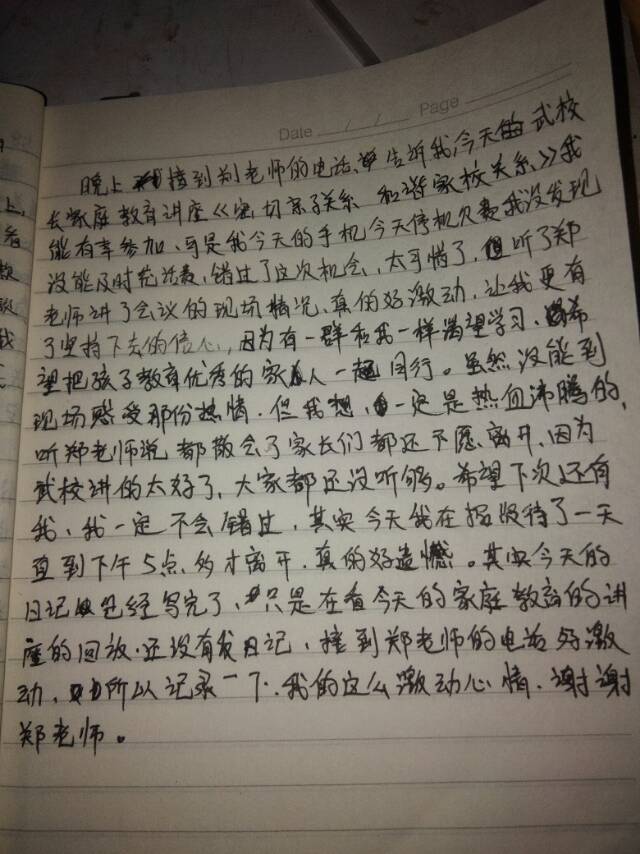 Date / / Page
晚上接到刘老师的电话,告诉我,今天的武校
长家庭教育讲座《密切亲子关系 和谐家校关系》我
能有幸参加,可是我今天的手机今天停机欠费我没发现
没能及时充话费,错过了这次机会,太可惜了,但听了郑
老师讲了会议的现场情况,真的好激动,让我更有
了坚持下去的信心,因为有一群和我一样渴望学习,希
望把孩子教育优秀的家人一起同行。虽然没能到
现场感受那份热情,但我想,一定是热血沸腾的,
听郑老师说都散会了家长们都还不愿离开,因为
武校讲的太好了,大家都还没听够。希望下次还有
我,我一定不会错过,其实今天我在报版待了一天
直到下午5点多才离开,真的好遗憾。其实今天的
日记已经写完了,只是在看今天的家庭教育的讲
座的回放,还没有发日记,接到郑老师的电话好激
动,所以记录一下,我的这么激动心情,谢谢
郑老师。
上
看
我